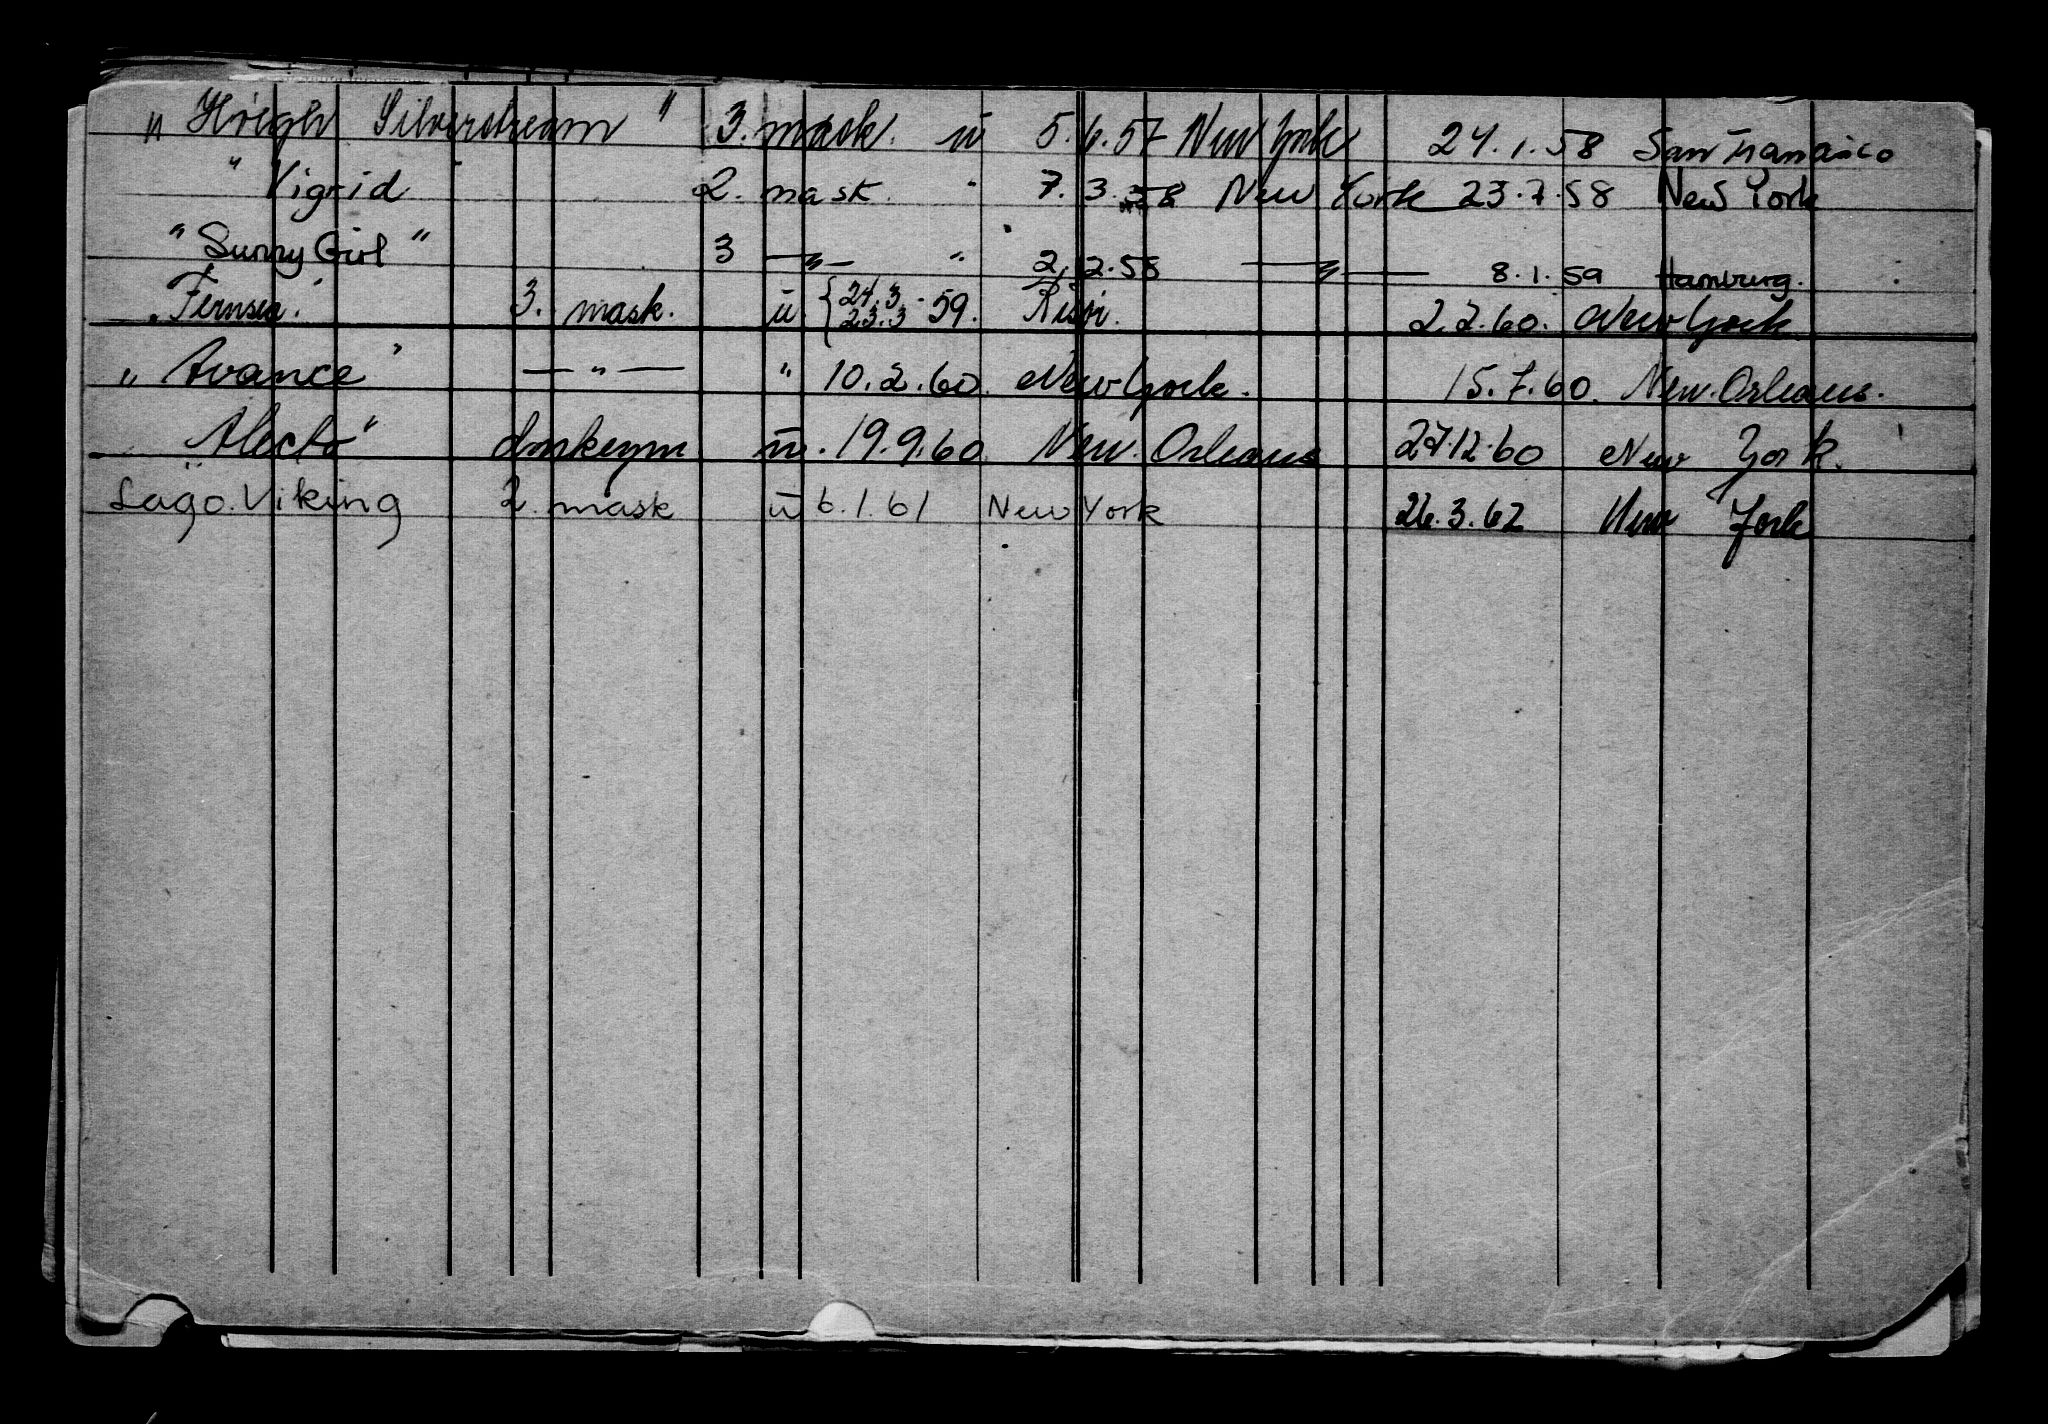 „ Höegh Silverstream " 3. mask. u 5.6.57 New York 24.1.58 San Fransisco
" Vigrid 2. mask. " 7.3.58 New York 23.7.58 New York
" Sunny Girl " 3 — " — " 2.12.58 — " — 8.1.59 Hamburg.
„ Fernsea. ' 3. mask. u. { 24.3 23.3 . 59. 2.2.60. New York.
„ Avance " — " — " 10.2.60. New York. 15.7.60. New. Orleans.
„ Alecto " donkeym u. 19.9.60 New. Orleans 27.12.60 New York.
Lago. Viking 2. mask u 6.1.61 New York 26.3.62 New York